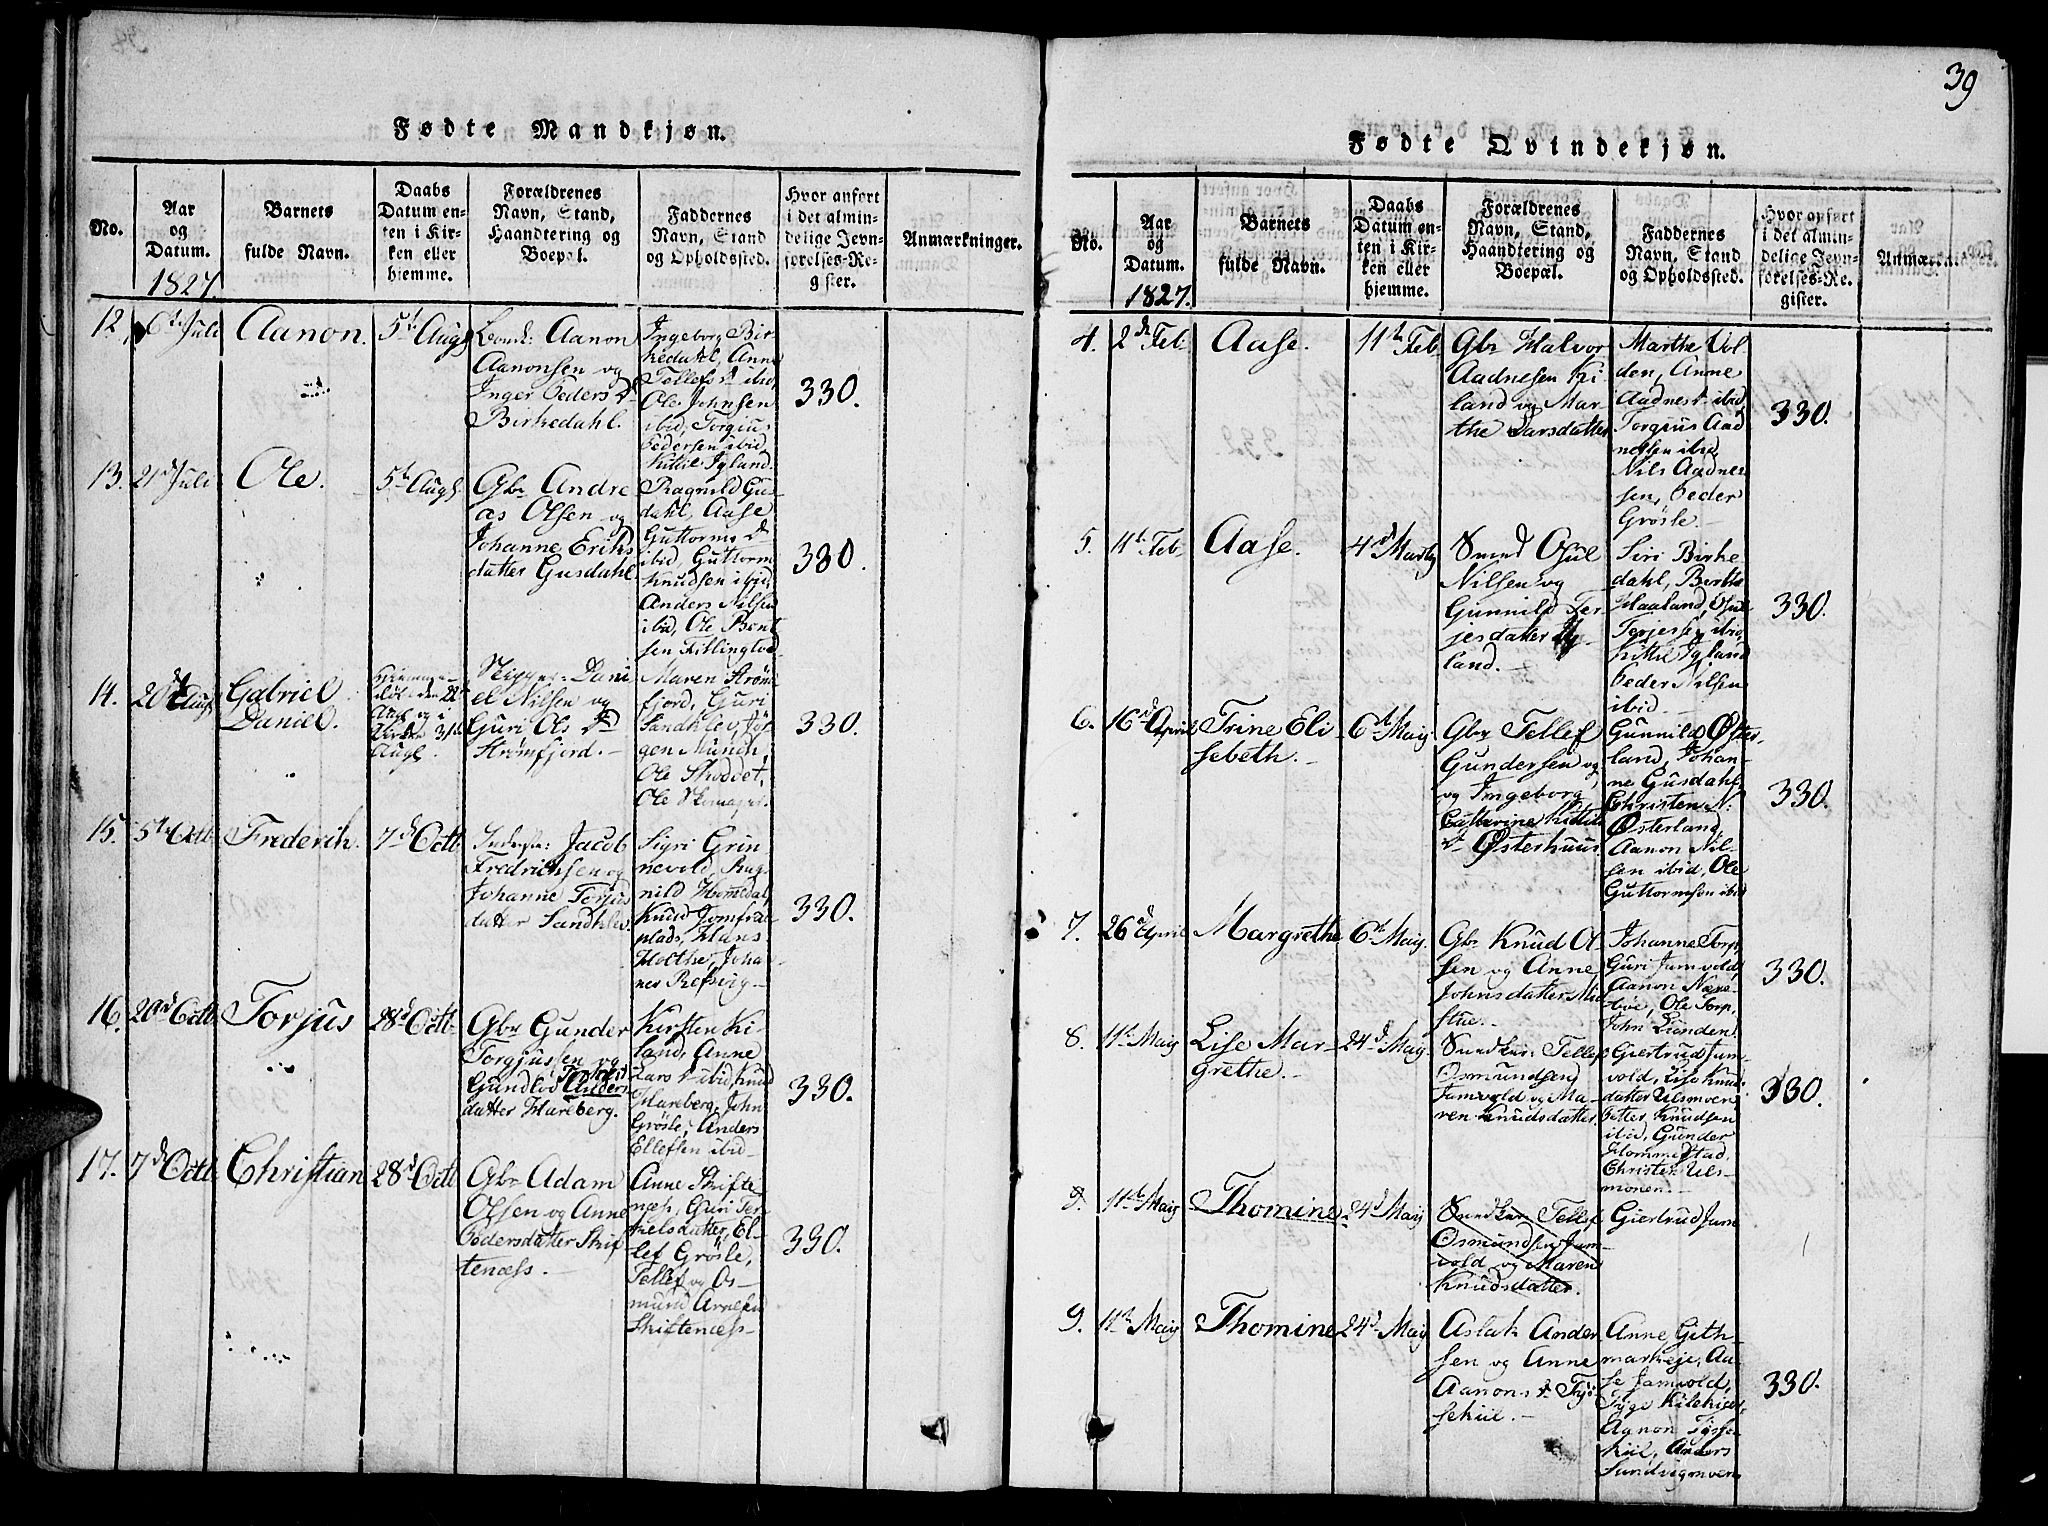 39
Fødte Mandkjøn.
No.
Aar
og
Datum.
1827.
Barnets
fulde Navn.
Daabs
Datum en-
ten i Kir-
ken eller
hjemme.
Forældrenes
Navn, Stand,
Haandtering og
Boepæl.
Faddernes
Navn, Stand
og Opholdssted.
Hvor anført
i det almin-
delige Jevn-
førelses-Re-
gister.
Anmærkninger.
12
6t Juli
Aanon.
5t Augs
Aanon
Aanonsen og
Inger Peders d
Birkedahl.
Ingeborg Bir-
kedahl, Anne
Tellefs d ibid,
Ole Johnsen
ibid, Torgius
Pedersen ibid
Kittil Igland.
330.
13.
21d Juli
Ole.
5t Augs
Gbr Andre
as Olsen og
Johanne Eriks
datter Gusdahl
Ragnild Gus-
dahl, Aase
Guttorms d
ibid, Guttorm
Knudsen ibid,
Anders Nilsen
ibid, Ole Bent
sen Fitlingtvd
330.
14.
20d Augs
Gabriel
Daniel.
Hjemme-
døbt den 22d
Augs og i
Kirken 31te
Augs.
Skipper Dani
el Nilsen og
Guri Ols d
Strømfjord.
Maren Strøm
fjord, Guri
Sandklev, Jör
gen Münch,
Ole Skoddet,
Ole Skomager.
330.
15.
5t Octb
Frederik.
7d Octb
Jacob
Fredrichsen og
Johanne Terjus
datter Sandklev.
Sigri Grin
nevold, Rag
nild Homdal,
Knud Jomfru
plads, Hans
Holthe, Joha
nes Refsvig
330.
16.
20d Octb.
Torjus
28d Octb.
Gbr Gunder
Torgjussen og
Gundlod Anders
datter Hareberg.
Kirsten Ki-
land, Anne
Lars d ibid, Knud
Hareberg, John
Grösle, Anders
Ellefsen ibid
330.
17.
7d Octb.
Christian
28d Octb
Gbr Adam
Olsen og Anne
Pedersdatter Skif
tenæss.
Anne Skifte
næss, Guri Ter
kielsdatter, El-
lef Grösle,
Tellef og Os-
mund Arnesen
Skiftenæss
330.
Fødte Qvindekjøn.
No.
Aar
og
Datum.
1827.
Barnets
fulde Navn.
Daabs
Datum en-
ten i Kir-
ken eller
hjemme.
Forældrenes
Navn, Stand,
Haandtering og
Boepæl.
Faddernes
Navn, Stand
og Opholdssted.
Hvor anført
i det almin-
delige Jevn-
førelses-Re-
gister.
Anmærkn
4.
2d Feb
Aase.
11t Feb
Gbr Halvor
Aadnesen Ki
land og Mar-
the Larsdatter
Marthe Vol
den, Anne
Aadnes d ibid
Torgius Aad
nesen ibid,
Nils Aadne-
sen, Peder
Grösle.
330.
5.
11t Feb
Aase.
4d Marty
Smed Osul
Nilsen og
Gunnild Ter-
jesdatter Ig
land.
Siri Birke
dahl, Berthe
Haaland, Osul
Terjesen ibid,
Kittil Igland
Peder Nilsen
ibid
330.
6.
16d April
Trine Eli
sebeth.
6t Maij
Gbr Tellef
Gundersen og
og Ingeborg
Cathrine Kittils
d Østerhuus.
Gunnild Øster-
land, Johan-
ne Gusdahl,
Christen N.
Østerland,
Aanon Nil-
sen ibid, Ole
Guttormsen ibid
330.
7.
26d April
Margrethe
6t Maij.
Gbr Knud Ol
sen og Anne
Johnsdatter Mid
stue.
Johanne Torp,
Guri Jamvold,
Aanon Næve-
bøe, Ole Torp,
John Lunden.
330.
8.
11t Maij
Lise Mar-
grethe.
24d Maij.
Smedker: Tellef
Osmundsen
Jamvold og Ma
ren Knudsdatter.
Giertrud Jam
vold, Lise Knud
datter Ulsmoen
Petter Knudsen
ibid, Gunder
Hommestad
Christen Uls-
monen.
330.
9.
11t Maij
Thomine
24d Maij
Smedker Tellef
Osmundsen Jam-
vold og Maren
Knudsdatter.
Giertrud Jam
9.
11t Maij
Thomine
24d Maij
Aslak Ander
sen og Anne
Aanons d Tys
sekiil.
Anne Gith-
markeje, Aa-
se Jamvold,
Tyge
Aanon Tysse
kiil, Anders
Sandvigmoen
330.